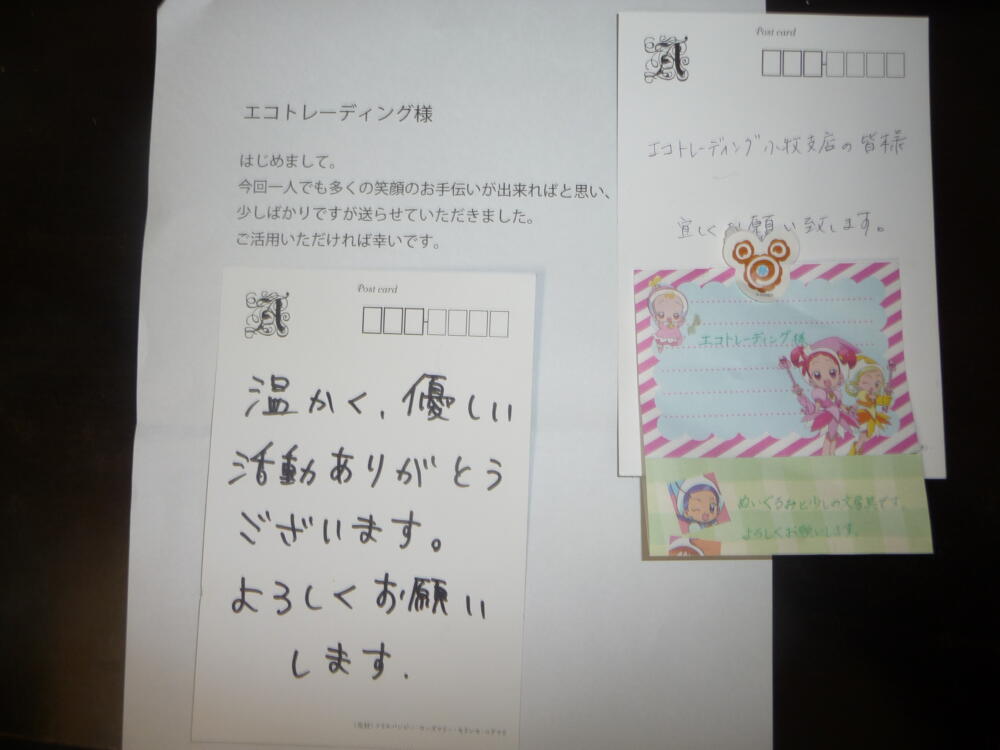 エコトレーディング様
はじめまして。
今回一人でも多くの笑顔のお手伝いが出来ればと思い、
少しばかりですが送らせていただきました。
ご活用いただければ幸いです。
Post card
A
温かく、優しい
活動ありがとう
ございます。
よろしくお願い
します.
Post card
A
エコトレーディング小牧支店の皆様
宜しくお願い致します。
エコトレーディング様
ぬいぐるみと少しの文房具です。
よろしくお願いします。